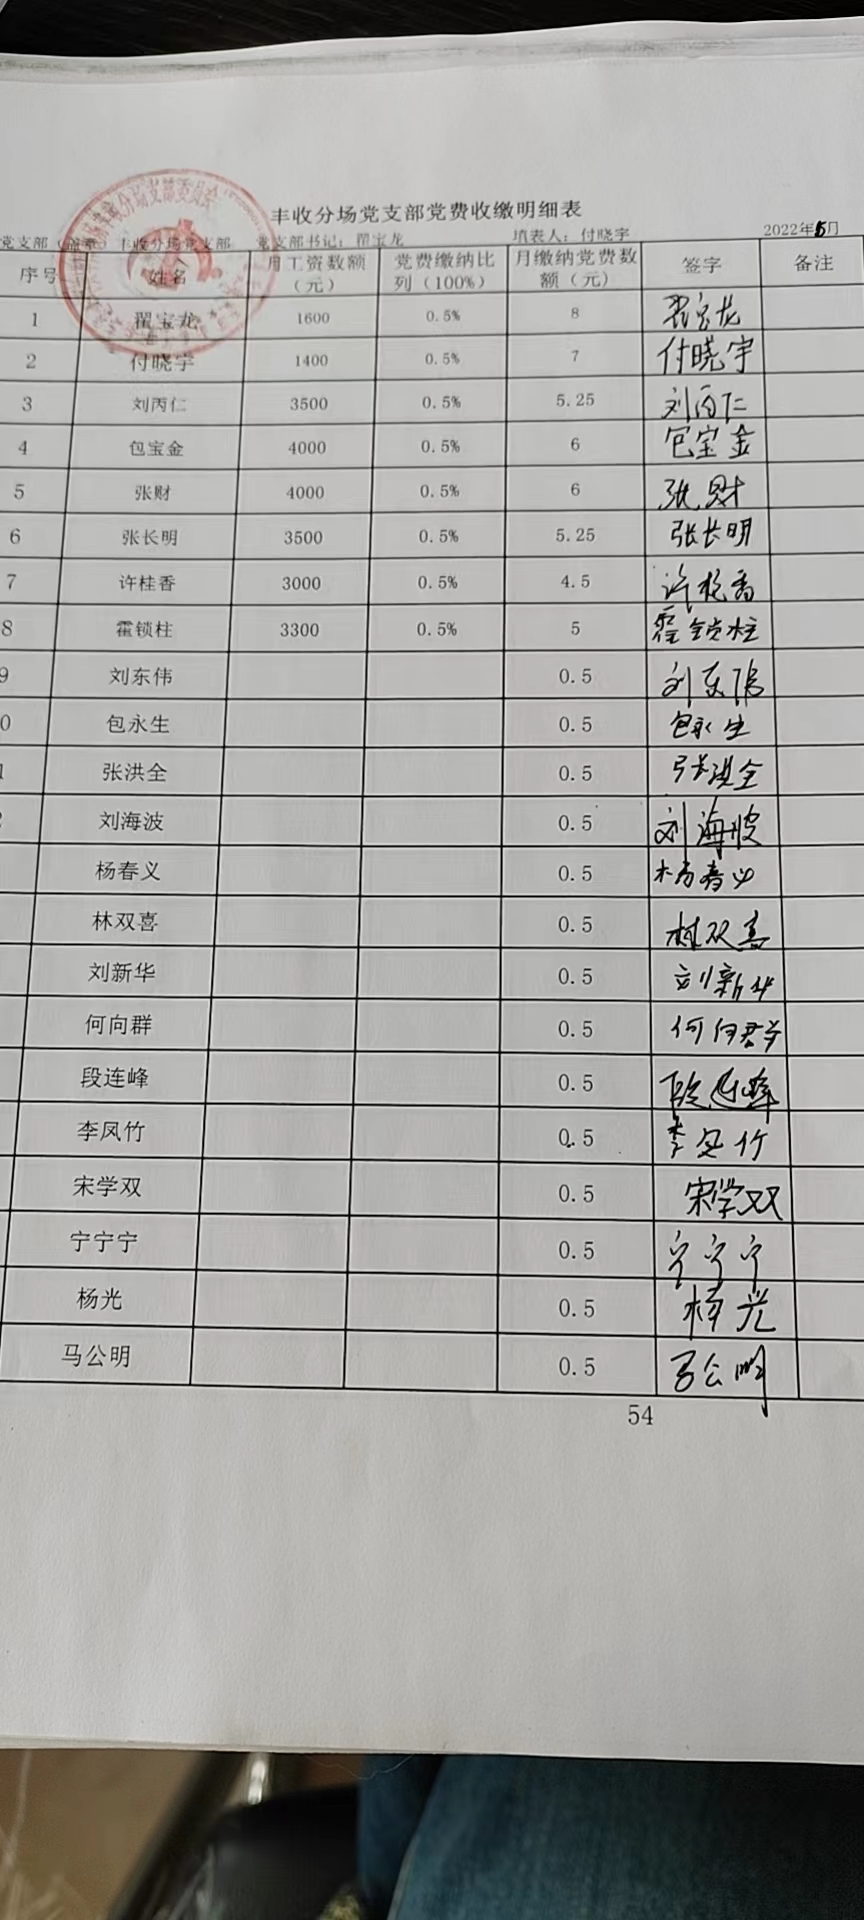 丰收分场党支部党费收缴明细表
党支部（盖章 丰收分场党支部 党支部书记：翟宝龙 填表人：付晓宇 2022年5月
序号 姓名 月工资数额（元） 党费缴纳比列（100%） 月缴纳党费数额（元） 签字 备注
1 翟宝龙 1600 0.5% 8 翟宝龙
2 付晓宇 1400 0.5% 7 付晓宇
3 刘丙仁 3500 0.5% 5.25 刘丙仁
4 包宝金 4000 0.5% 6 包宝金
5 张财 4000 0.5% 6 张财
6 张长明 3500 0.5% 5.25 张长明
7 许桂香 3000 0.5% 4.5 许桂香
8 霍锁柱 3300 0.5% 5 霍锁柱
9 刘东伟 0.5 刘东伟
0 包永生 0.5 包永生
1 张洪全 0.5 张洪全
刘海波 0.5 刘海波
杨春义 0.5 杨春义
林双喜 0.5 林双喜
刘新华 0.5 刘新华
何向群 0.5 何向群
段连峰 0.5 段连峰
李凤竹 0.5 李凤竹
宋学双 0.5 宋学双
宁宁宁 0.5 宁宁宁
杨光 0.5 杨光
马公明 0.5 马公明
54